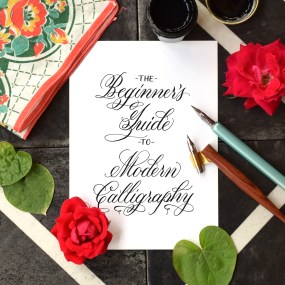 -THE-
Beginner's
Guide
-TO-
Modern
Calligraphy